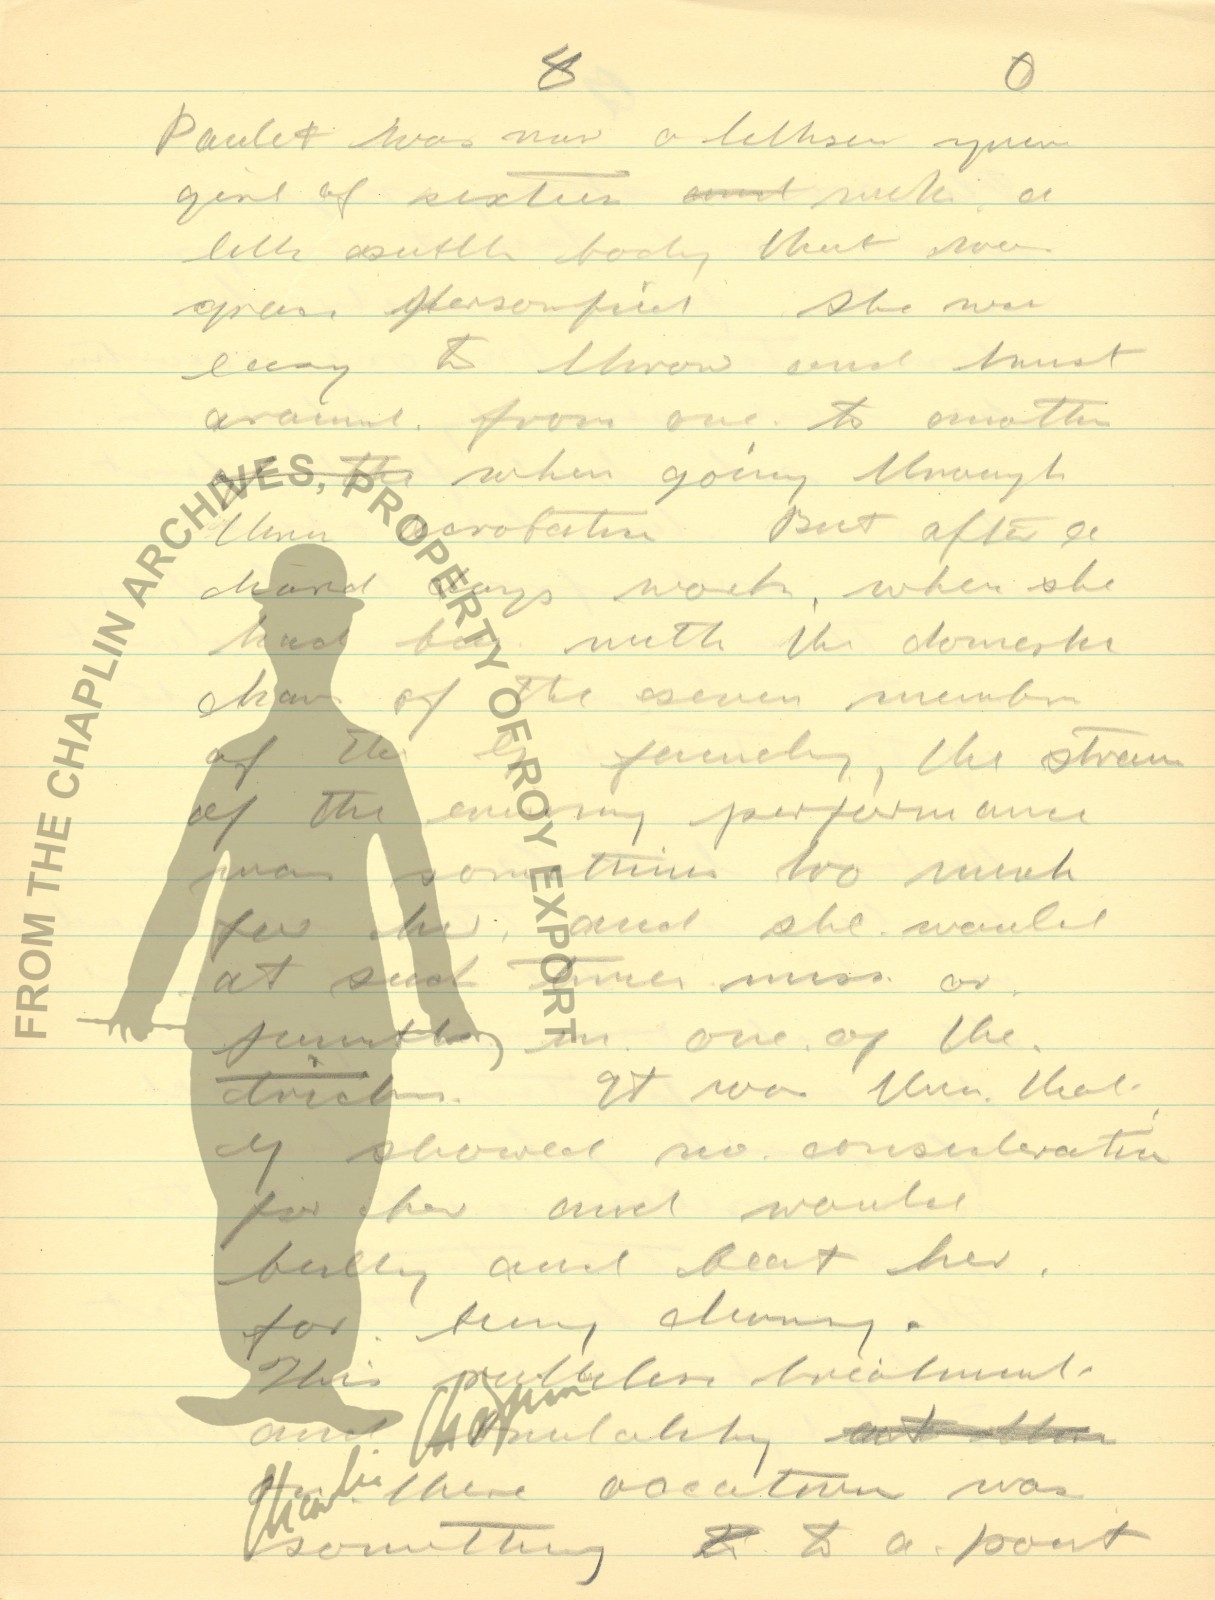 8 0
Paulet was now a
girl of sixteen and with a
body that was
personified She was
easy to throw and
around. from one. to another
the when going through
their acrobatics But after a
hard days work, when she
had with the domestic
of the seven members
of the family, the strain
of the evening performance
was sometimes too much
for her, and she would
at such times miss or
in one of the
tricks. It was then that
showed no. consideration
for her and would
bully and beat her.
for being clumsy.
This treatment
and at
these occations was
something to to a. point
FROM THE CHAPLIN ARCHIVES, PROPERTY OF ROY EXPORT
Charlie Chaplin